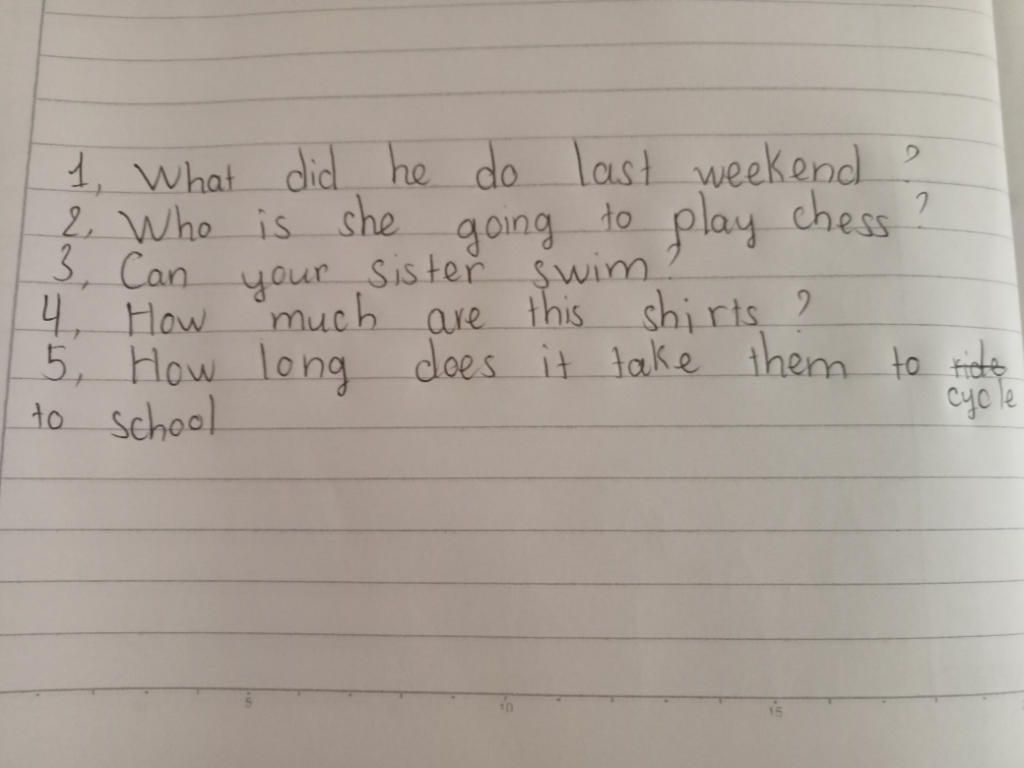 1, What did he do last weekend ?
2, Who is she going to play chess ?
3, Can your sister swim ?
4, How much are this shirts ?
5, How long does it take them to ride
cycle
to school
5 10 15